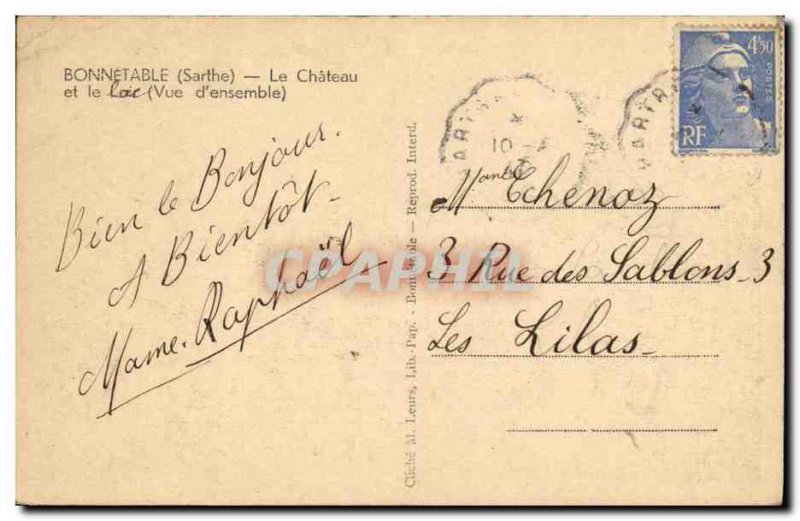 BONNÉTABLE (Sarthe) — Le Château
et le lac (Vue d'ensemble)
Bien le Bonjour.
A Bientôt -
Mame. Raphaël
Cliché M. Leurs, Lib.-Pap. - Bonnétable — Reprod. Interd.
4F50
POSTES
RF
10
Mame Thenoz
3 Rue des Sablons - 3
Les Lilas -
CPAPHIL